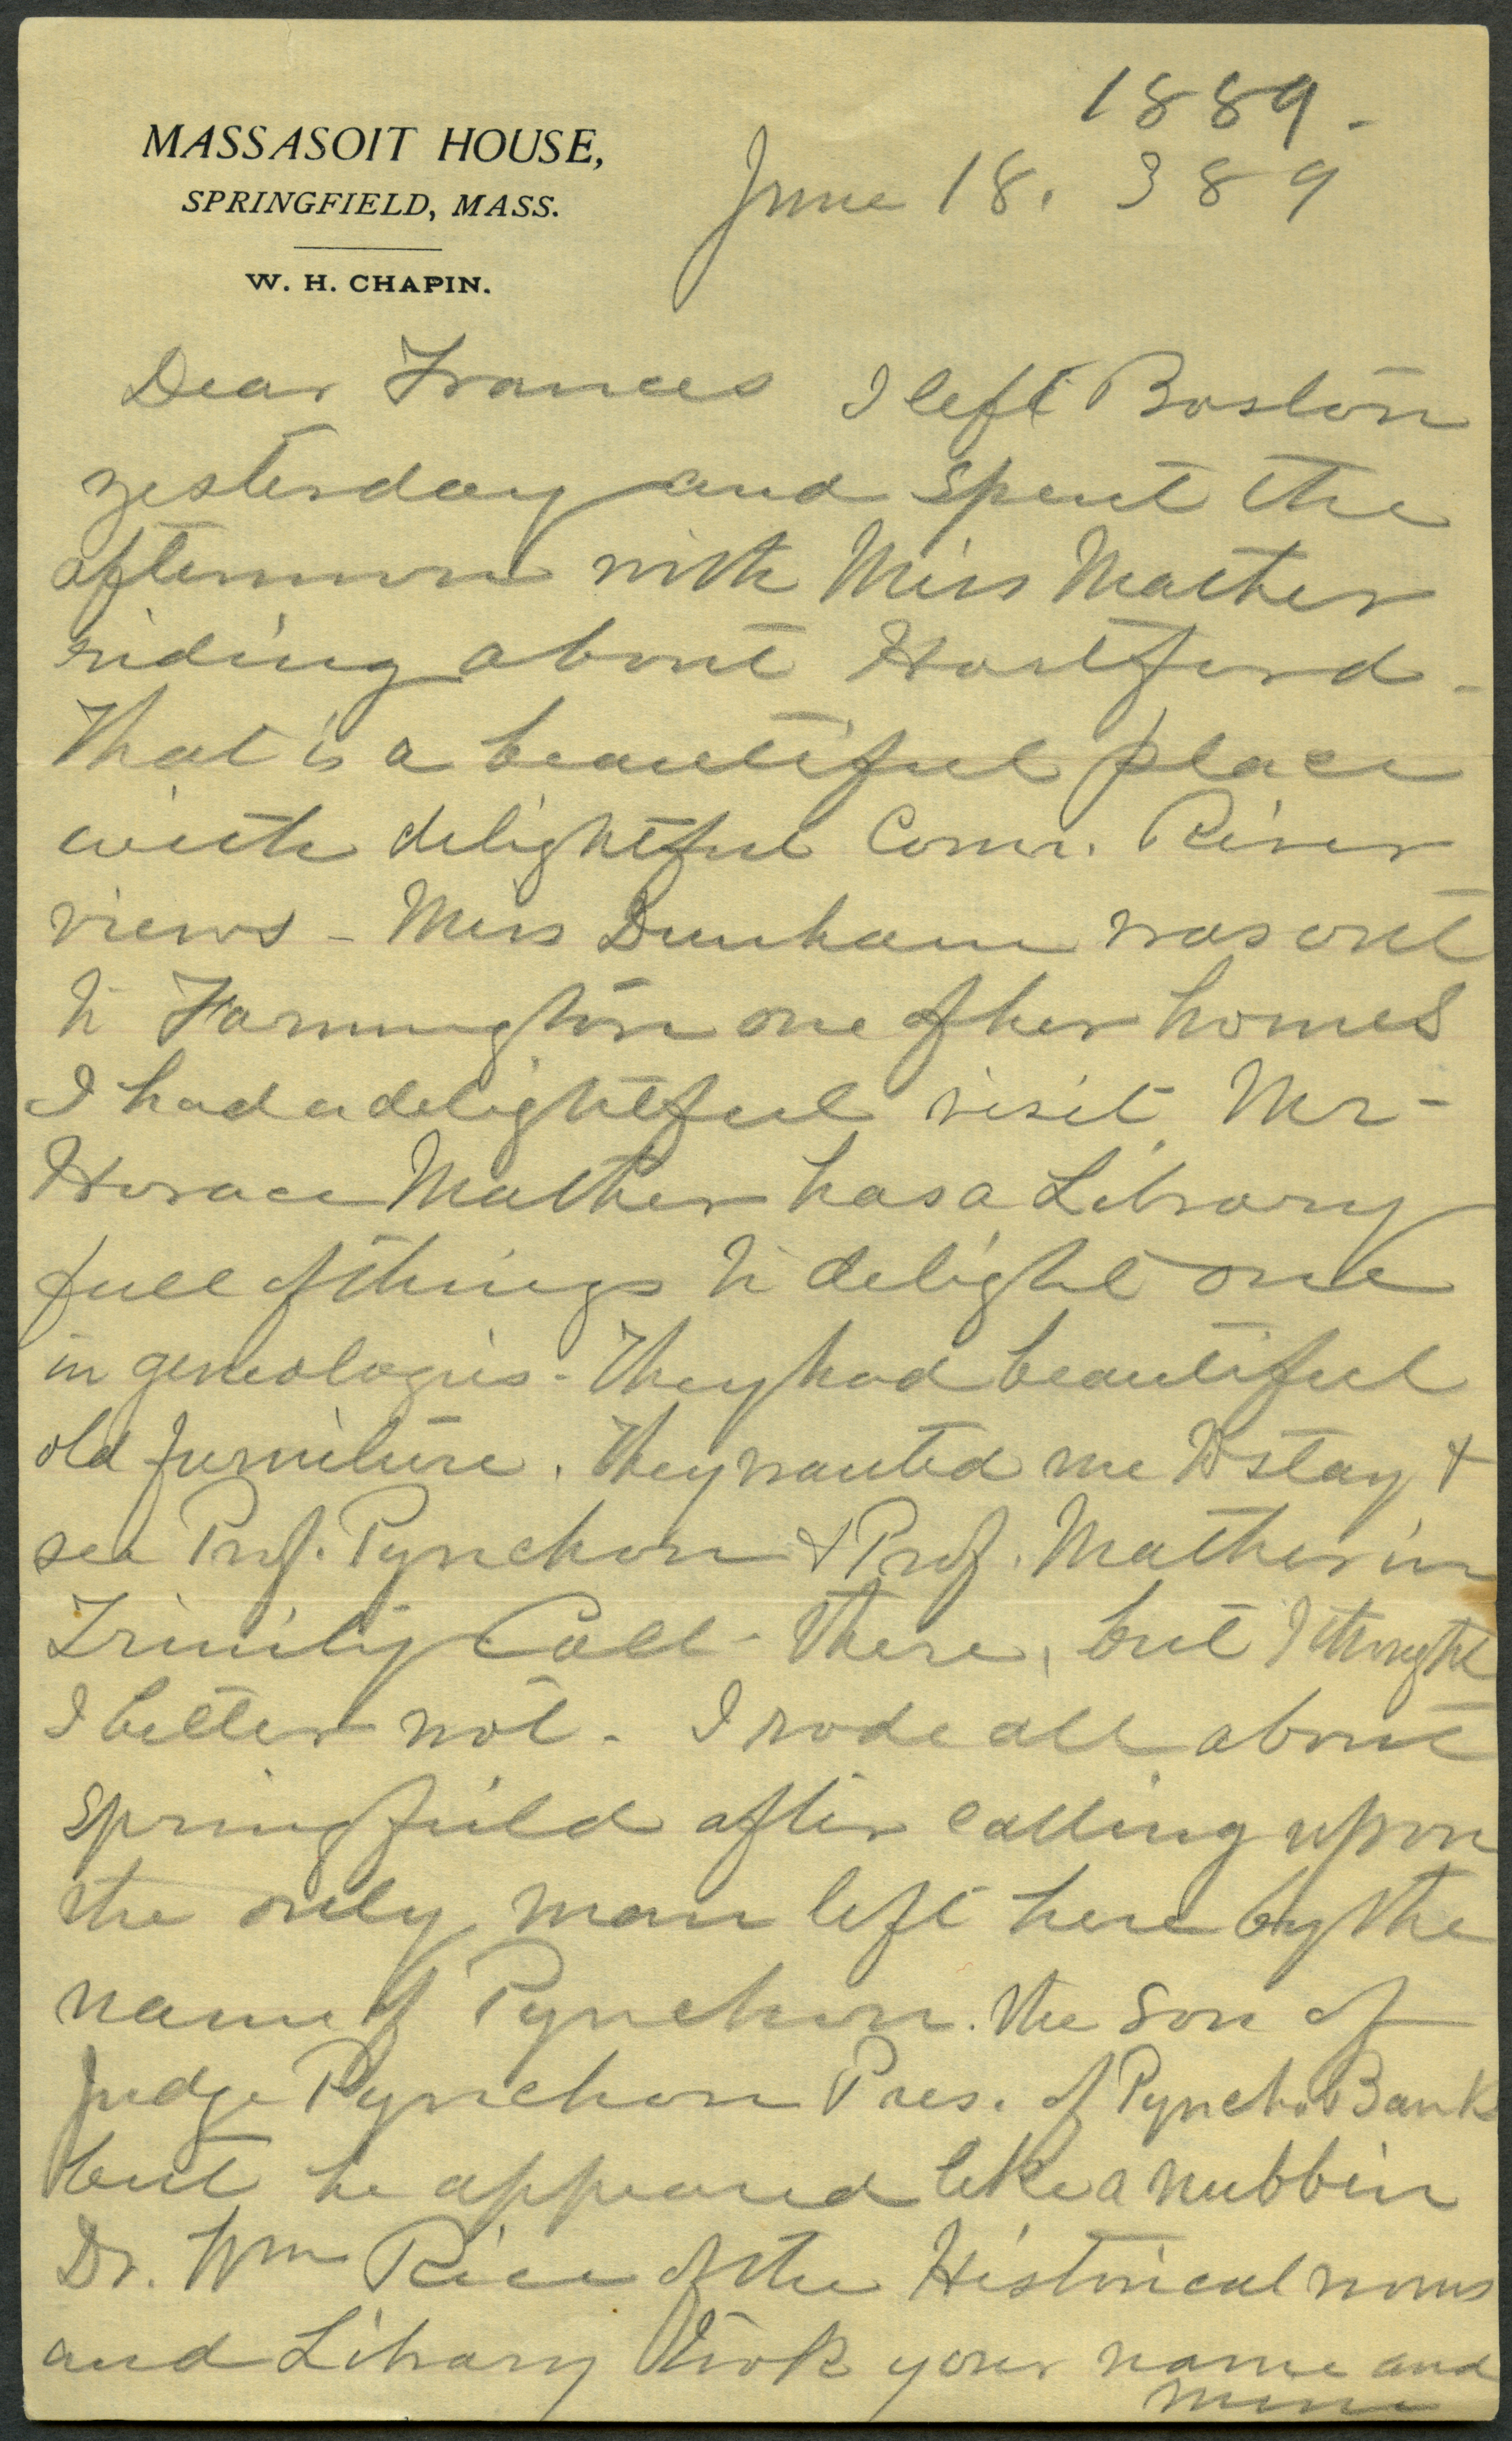 1889 -
MASSASOIT HOUSE,
SPRINGFIELD, MASS.
W. H. CHAPIN.
June 18. 389
Dear Frances I left Boston
yesterday and spent the
afternoon with Miss Mather
riding about Hartford -
That is a beautiful place
with delightful Conn. River
views - Miss Dunham was out
to Farmington one of her homes
I had a delightful visit. Mr -
Horace Mather has a Library
full of things to delight one
in geneologies. They had beautiful
old furniture. They wanted me to stay +
see Prof. Pynchon & Prof. Mather in
Trinity Coll - there, but I thought
I better not. I rode all about
Springfield after calling upon
the only man left here by the
name of Pynchon. the son of
Judge Pynchon Pres. of Pynchon Bank
but he appeared like a nubbin
Dr. Wm Rice of the Historical rooms
and Library took your name and
mine